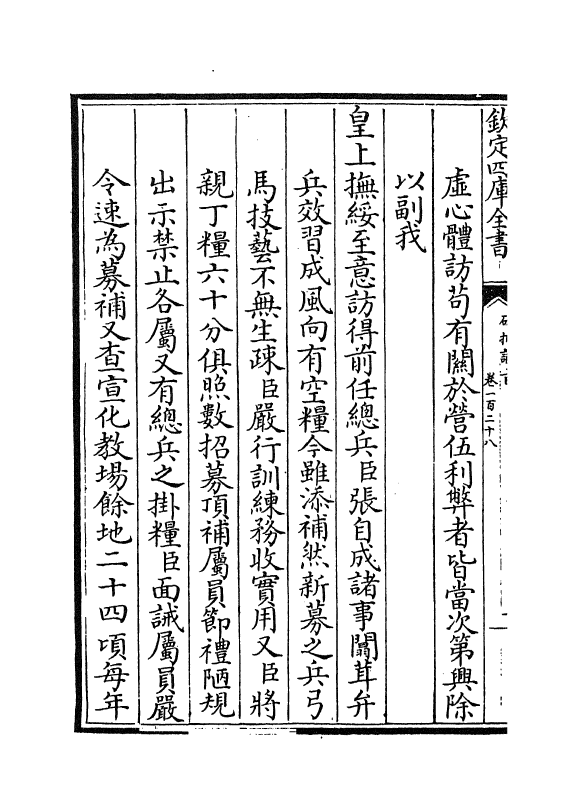 欽定四庫全書
卷一百二十八
虛心體訪苟有關於營伍利弊者皆當次第興除
以副我
皇上撫綏至意訪得前任總兵臣張自成諸事闒茸弁
兵效習成風向有空糧今雖添補然新募之兵弓
馬技藝不無生疎臣嚴行訓練務收實用又臣將
親丁糧六十分俱照數招募頂補屬員節禮陋規
出示禁止各屬又有總兵之掛糧臣面誡屬員嚴
令速為募補又查宣化教場餘地二十四頃每年